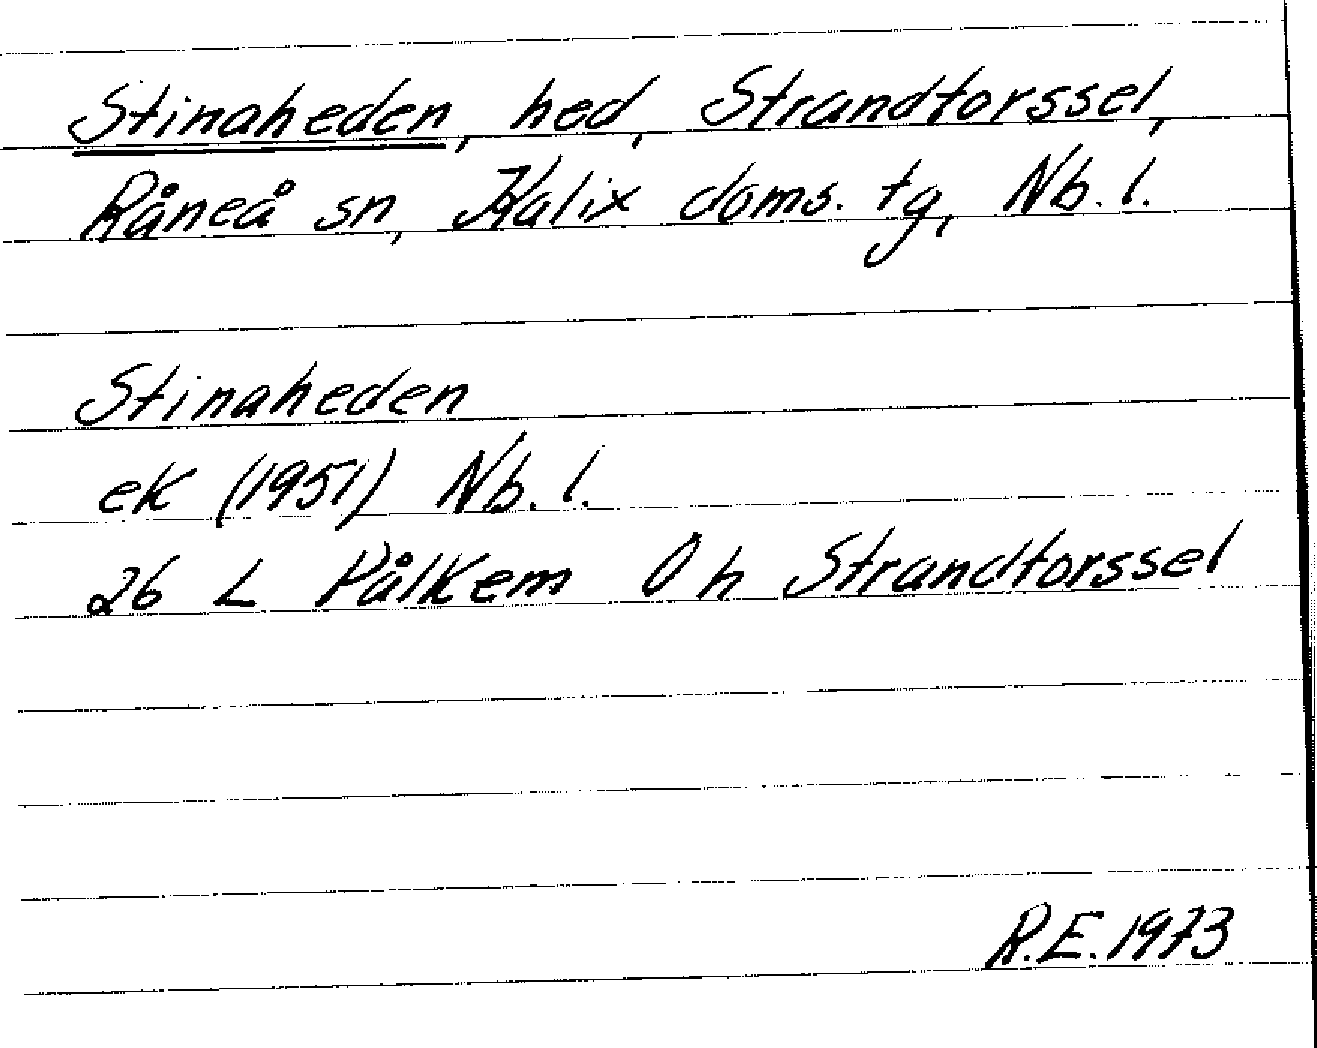 Stinaheden, hed, Strandtorssel,
Råneå sn, Kalix doms. tg, Nb. l.
Stinaheden
ek (1951) Nb. l.
26 L Pålkem 0 h Strandtorssel
R.E. 1973